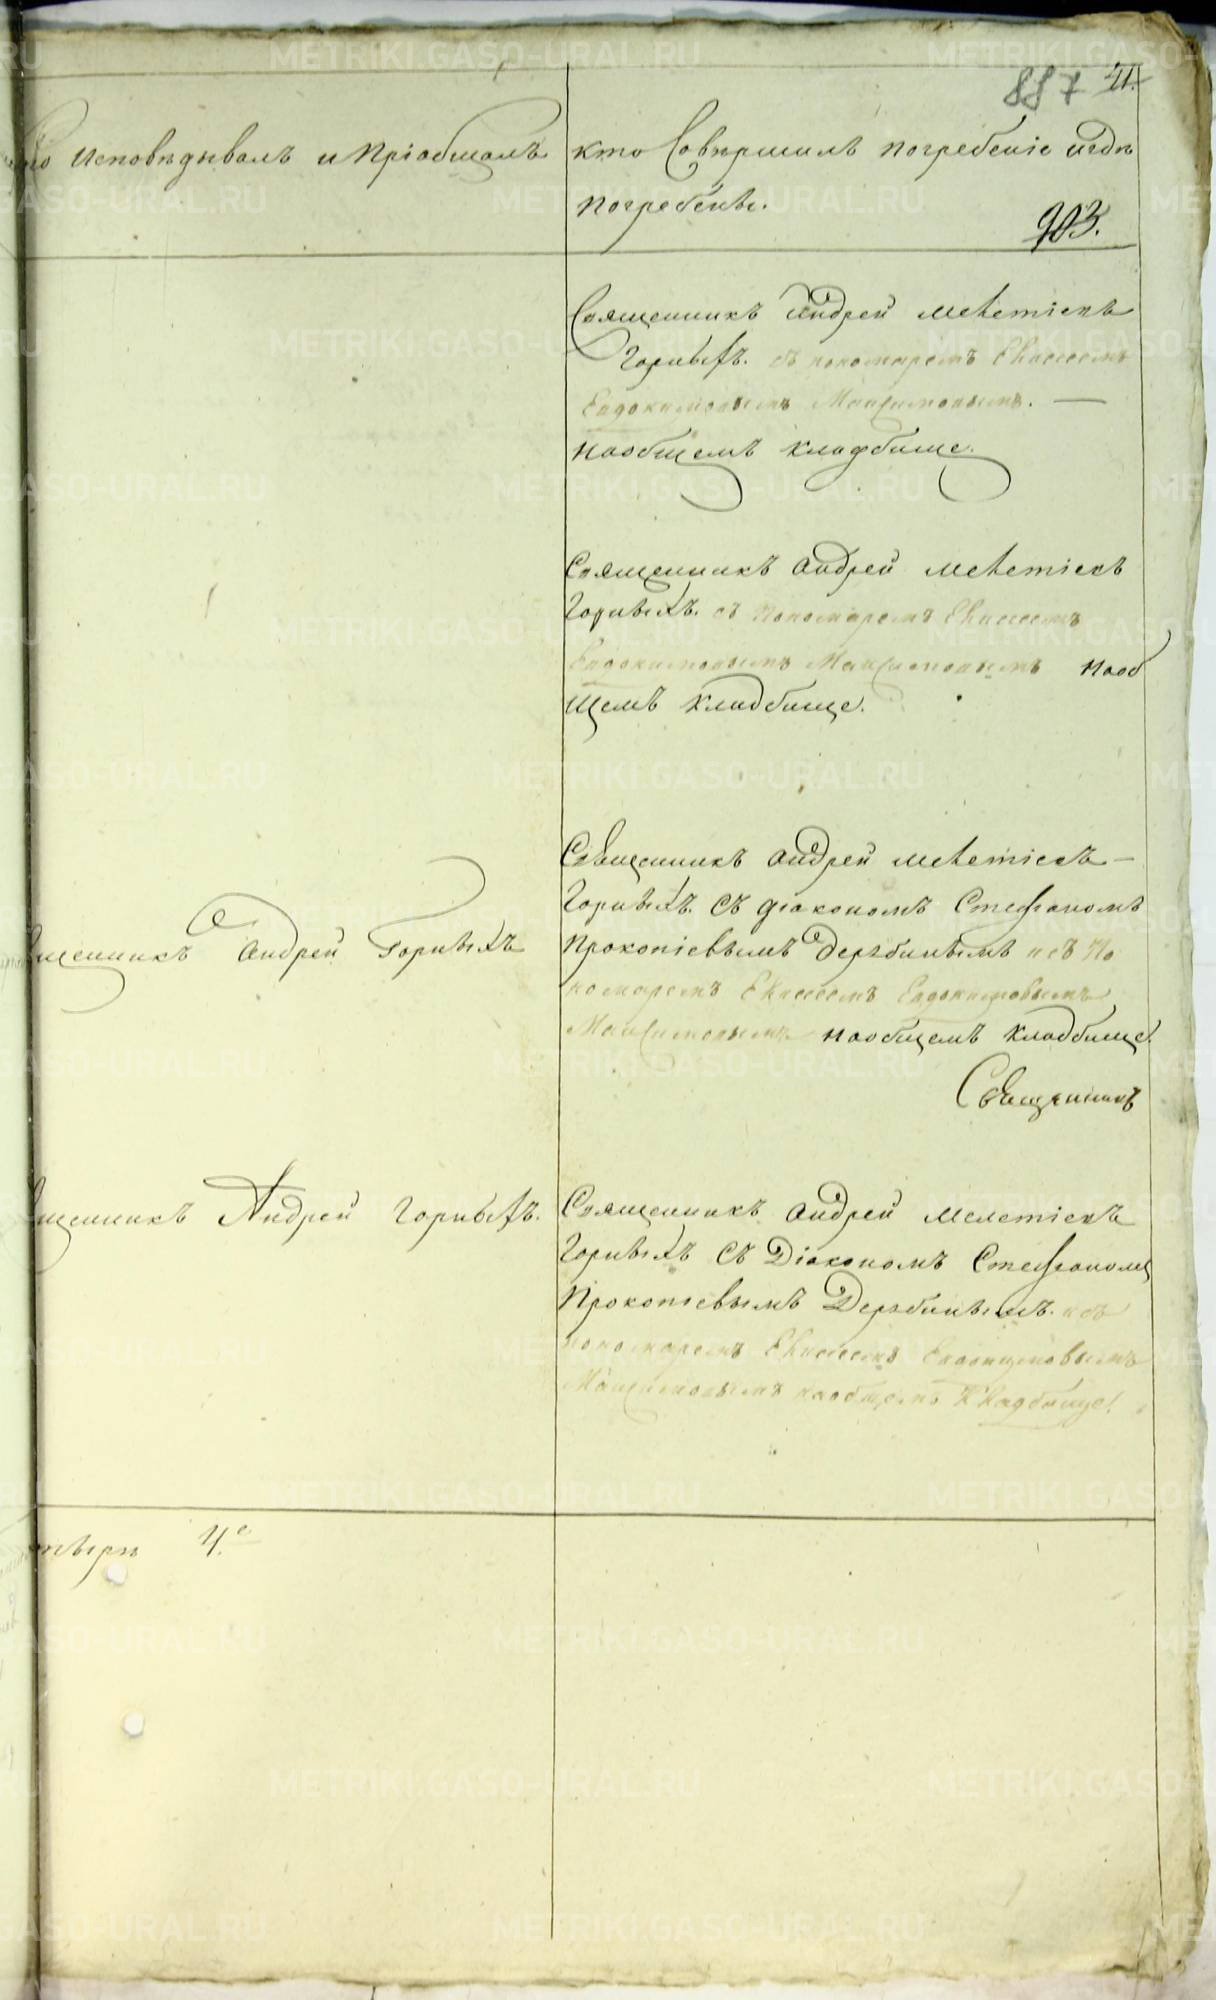 887 41.
Кто Исповѣдывалъ и Пріобщалъ
кто Совершилъ погребеніе и гдѣ
погребены.
903.
Священникъ Андрей Мелетіевъ
Горныхъ. съ пономаремъ Елисеемъ
Евдокимовымъ Максимовымъ. —
на общемъ кладбище.
Священникъ Андрей Мелетіевъ
Горныхъ. съ Пономаремъ Елисеемъ
Евдокимовымъ Максимовымъ на об
щемъ кладбище.
щенникъ Андрей Горныхъ
Священникъ Андрей Мелетіевъ —
Горныхъ. съ діакономъ Стефаномъ
Прокопіевымъ Дерябинымъ и съ По
номаремъ Елисеемъ Евдокимовымъ
Максимовымъ на общемъ кладбище.
Священникъ
щенникъ Андрей Горныхъ.
Священникъ Андрей Мелетіевъ
Горныхъ съ Діакономъ Стефаномъ
Прокопіевымъ Дерябинымъ. и съ
пономаремъ Елисеемъ Евдокимовымъ
Максимовымъ на общемъ кладбище.
4.е
METRIKI.GASO-URAL.RU